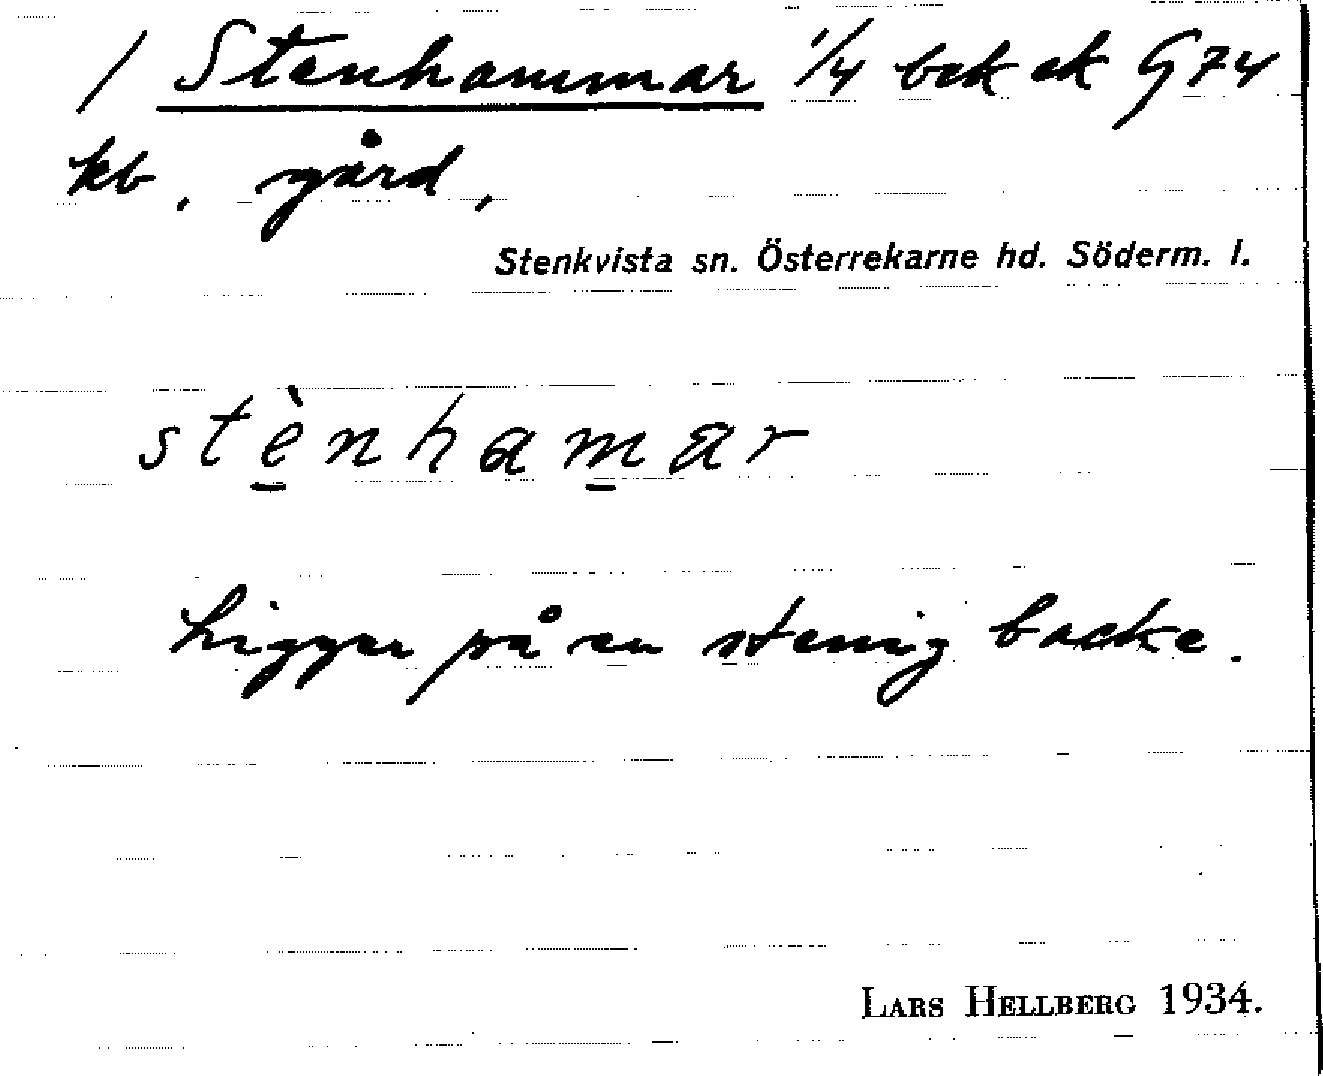 / Stenhammar 1/4 bek ek G 74
kb, gård,
Stenkvista sn. Österrekarne hd. Söderm. l.
stènhamar
Ligger på en stenig backe.
LARS HELLBERG 1934.